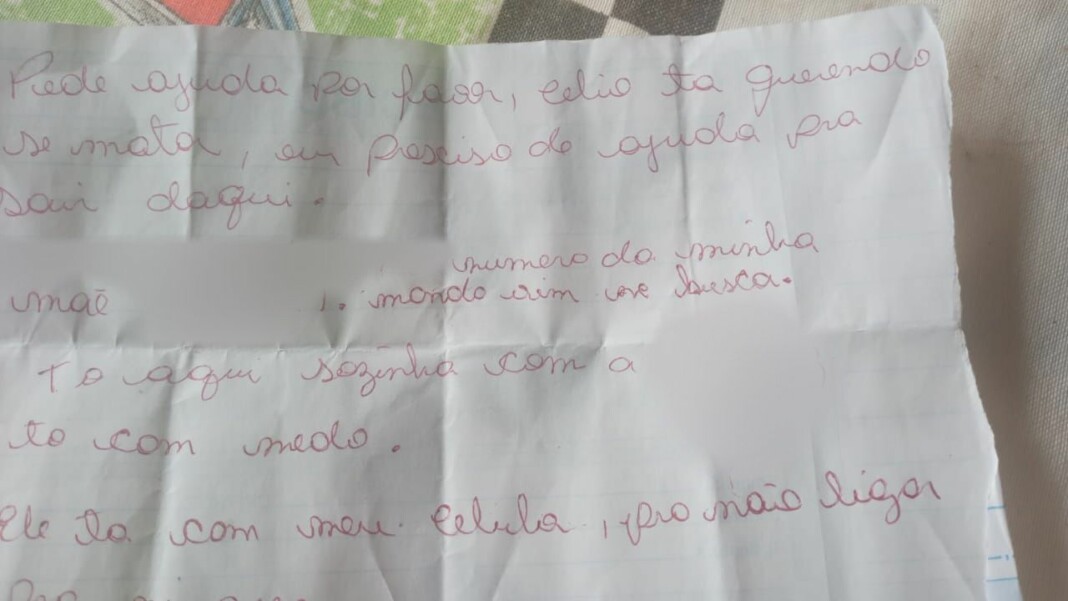 Pede ajuda por favor, celio ta querendo
se mata, eu presciso de ajuda pra
sair daqui.
numero da minha
mãe mando vim me busca.
to aqui sozinha com a
to com medo.
Ele ta com meu celula, pro não ligar